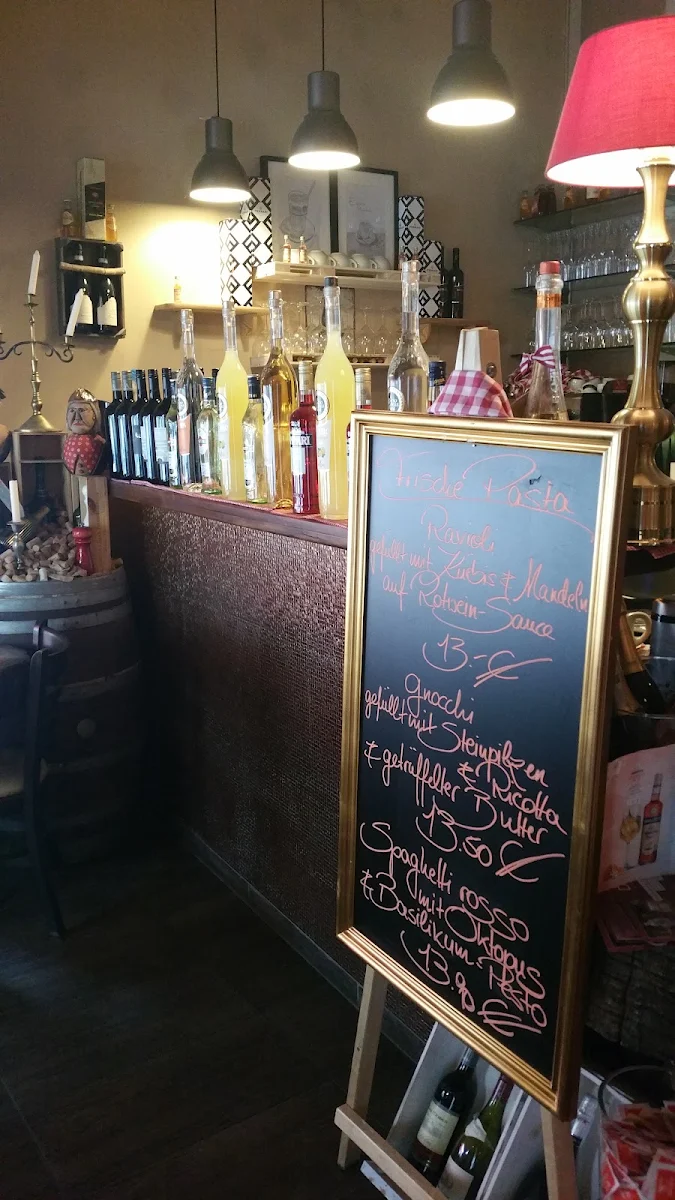 Frische Pasta
Ravioli
gefüllt mit Kürbis & Mandeln
auf Rotwein-Sauce
13.-€
Gnocchi
gefüllt mit Steinpilzen
& Ricotta
& getrüffelter Butter
13.50 €
Spaghetti rosso
mit Oktopus
& Basilikum-Pesto
13.90 €